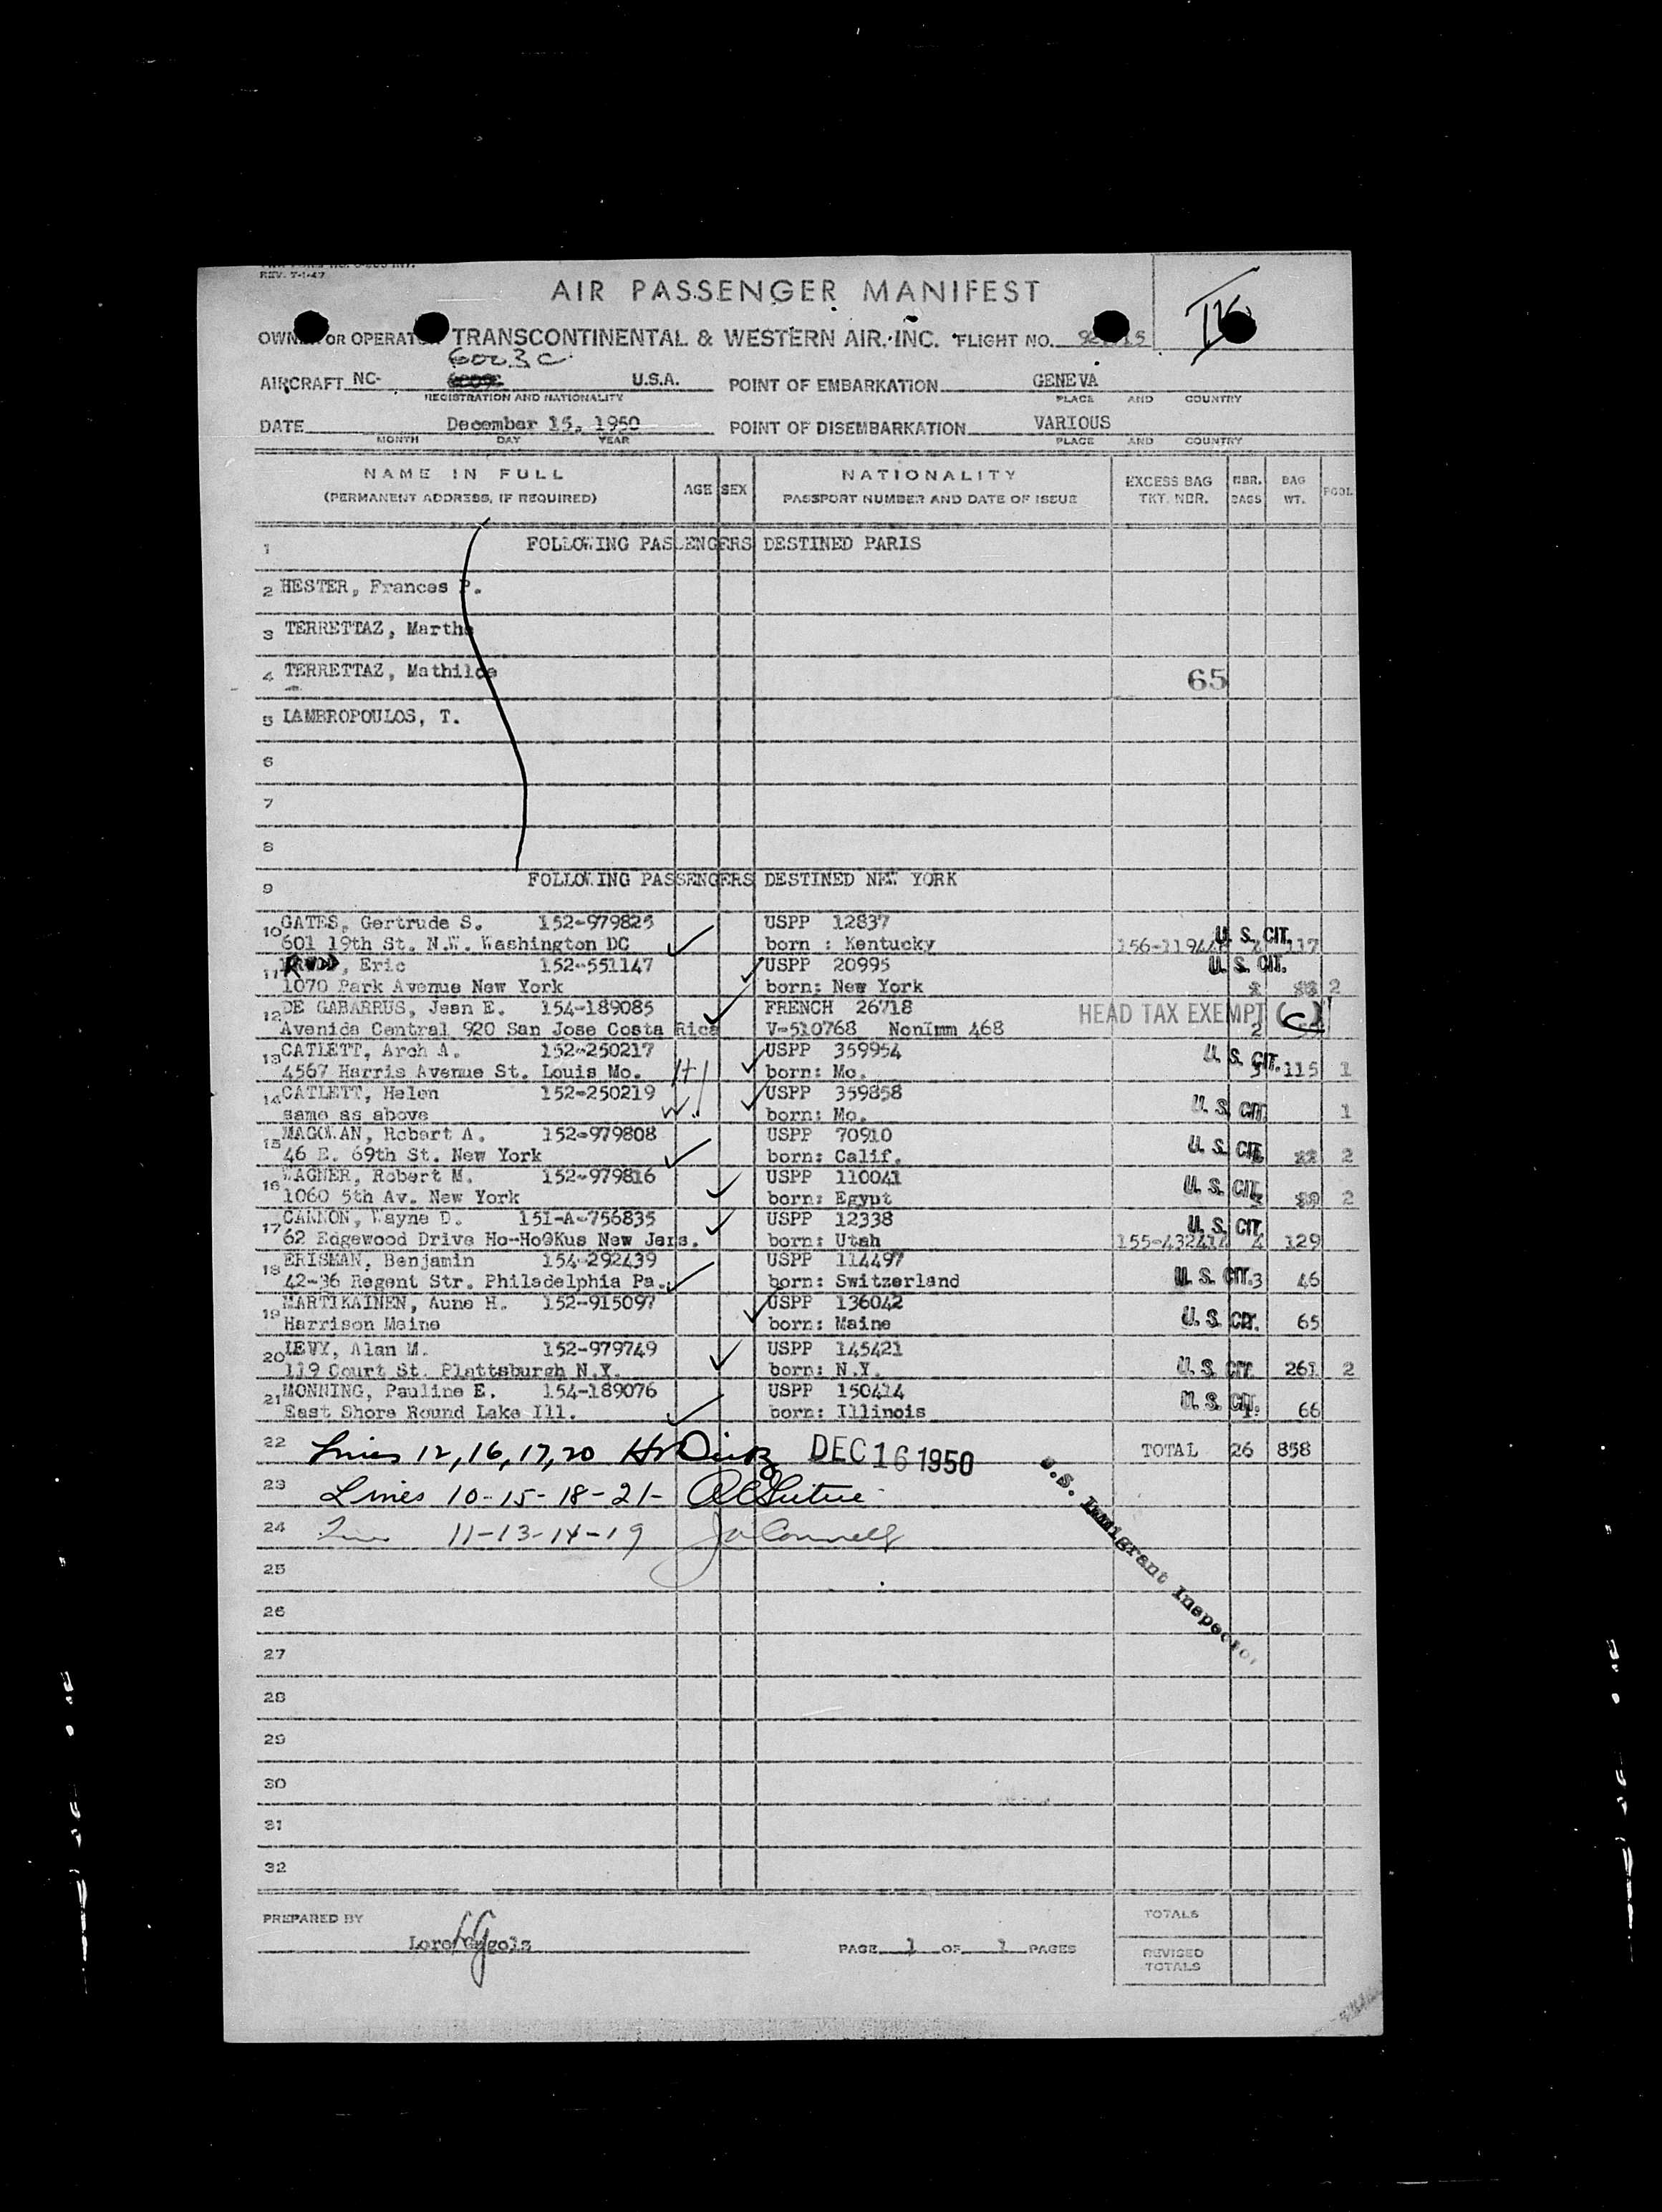 REV. 7-1-47
AIR PASSENGER MANIFEST
OR TRANSCONTINENTAL & WESTERN AIR, INC. FLIGHT NO.
6003C
AIRCRAFT NC- U.S.A. POINT OF EMBARKATION GENEVA
REGISTRATION AND NATIONALITY PLACE AND COUNTRY
DATE December 15, 1950 POINT OF DISEMBARKATION VARIOUS
MONTH DAY YEAR PLACE AND COUNTRY
NAME IN FULL AGE SEX NATIONALITY EXCESS BAG NBR. BAG POOL
(PERMANENT ADDRESS, IF REQUIRED) PASSPORT NUMBER AND DATE OF ISSUE TKT. NBR. BAGS WT.
1 FOLLOWING PASSENGERS DESTINED PARIS
2 HESTER, Frances P.
3 TERRETTAZ, Martha
4 TERRETTAZ, Mathilde 65
5 LAMBROPOULOS, T.
6
7
8
9 FOLLOWING PASSENGERS DESTINED NEW YORK
10 GATES, Gertrude S. 152-979825 USPP 12837 U. S. CIT.
601 19th St. N.W. Washington DC born : Kentucky 117
11 RUDD, Eric 152-551147 USPP 20995 U. S. CIT.
1070 Park Avenue New York born: New York 2
12 DE GABARRUS, Jean E. 154-189085 FRENCH 26718 HEAD TAX EXEMPT (c)
Avenida Central 920 San Jose Costa Rica V-510768 NonImm 468 2
13 CATLETT, Arch A. 152-250217 USPP 359954 U. S. CIT.
4567 Harris Avenue St. Louis Mo. H born: Mo. 115 1
14 CATLETT, Helen 152-250219 USPP 359858 U. S. CIT.
same as above W born: Mo. 1
15 MAGOWAN, Robert A. 152-979808 USPP 70910 U. S. CIT.
46 E. 69th St. New York born: Calif. 2
16 WAGNER, Robert M. 152-979816 USPP 110041 U. S. CIT.
1060 5th Av. New York born: Egypt 2
17 CANNON, Wayne D. 151-A-756835 USPP 12338 U. S. CIT.
62 Edgewood Drive Ho-Ho@Kus New Jers. born: Utah 155-432414 4 129
18 ERISMAN, Benjamin 154-292439 USPP 114497
42-36 Regent Str. Philadelphia Pa. born: Switzerland U. S. CIT. 3 46
19 MARTIKAINEN, Aune H. 152-915097 USPP 136042
Harrison Maine born: Maine U. S. CIT. 65
20 LEVY, Alan M. 152-979749 USPP 145421
119 Court St. Plattsburgh N.Y. born: N.Y. U. S. CIT. 261 2
21 MONNING, Pauline E. 154-189076 USPP 150414
East Shore Round Lake Ill. born: Illinois U. S. CIT. 66
22 Lines 12, 16, 17, 20 DEC 16 1950 TOTAL 26 858
23 Lines 10-15-18-21-
24 11-13-14-19
U.S. Immigrant Inspector
25
26
27
28
29
30
31
32
PREPARED BY TOTALS
PAGE 1 OF 1 PAGES REVISED
TOTALS